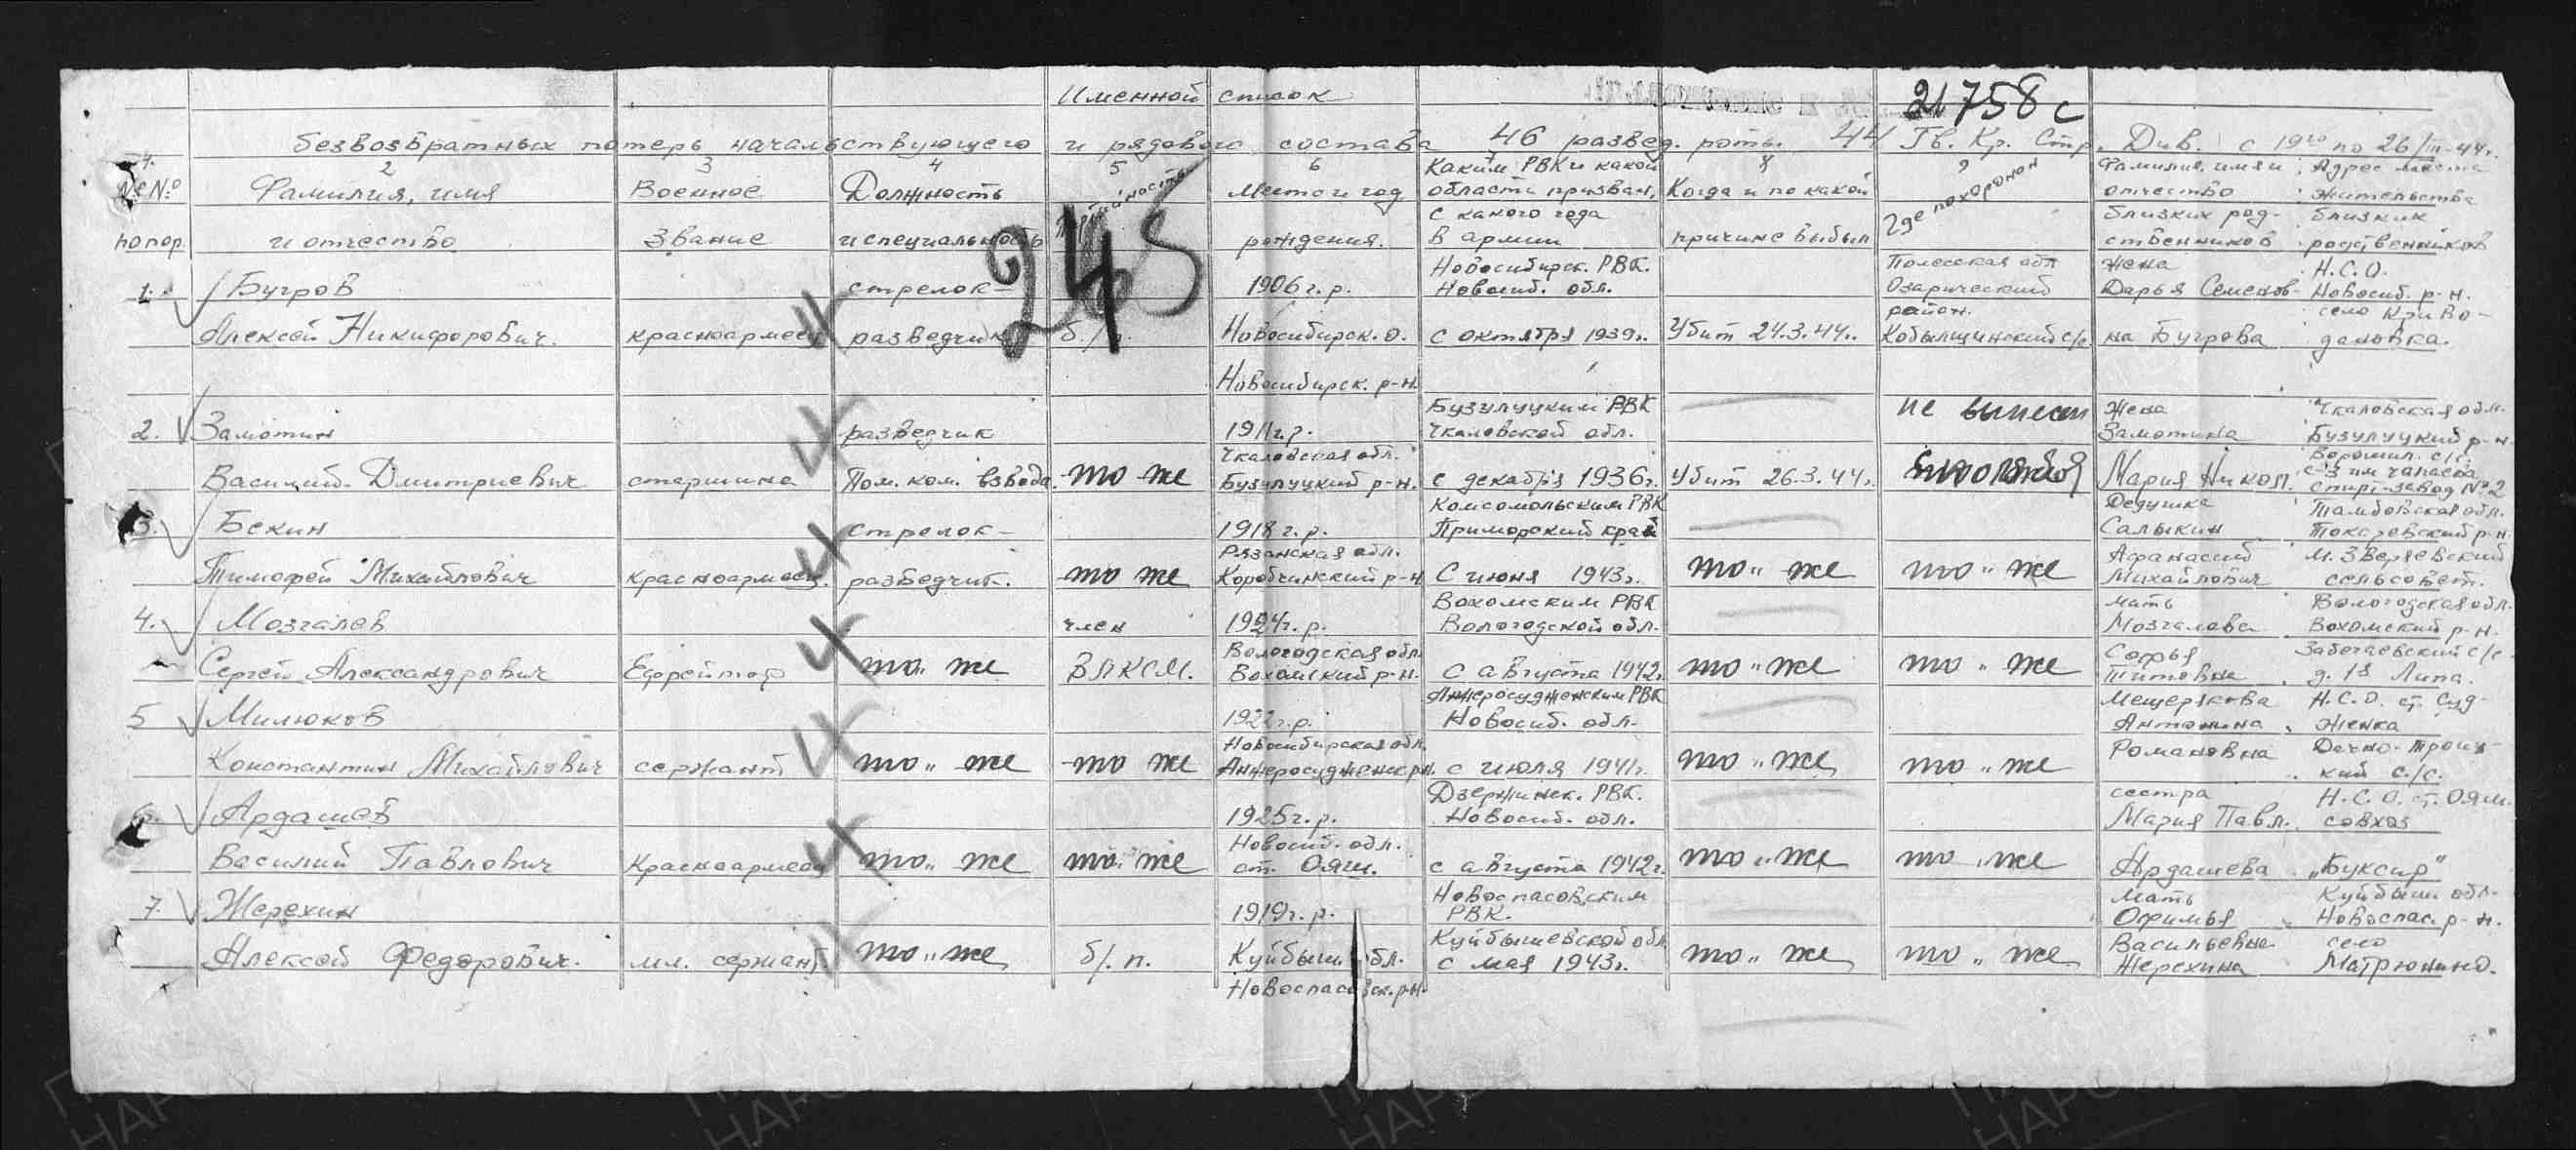 21758с
Именной список
безвозвратных потерь начальствующего и рядового состава 46 развед. роты 44 Гв. Кр. Стр. Див. с 19го по 26/III-44г.
1. 2 3 4 5 6 7 8 9
№№ по пор.
Фамилия, имя и отчество
Военное звание
Должность и специальность
Партийность
Место и год рождения.
Каким РВК и какой области призван, с какого года в армии
Когда и по какой причине выбыл
Где похоронен
Фамилия, имя и отчество близких родственников
Адрес места жительства близких родственников
245
1. Бугров
Алексей Никифорович.
красноармеец
стрелок-
разведчик
б./п.
1906 г.р.
Новосибирск. о.
Новосибирск. р-н.
Новосибирск. РВК.
Новосиб. обл.
с октября 1939г.
Убит 24.3.44г.
Полесская обл
Озарический
район.
Кобыльщинский с/с
Жена
Дарья Семенов-
на Бугрова
Н.С.О.
Новосиб. р-н.
село Криво-
дановка.
2. Замотин
Василий Дмитриевич
старшина
разведчик
Пом. ком. взвода
то же
1911г.р.
Чкаловская обл.
Бузулуцкий р-н.
Бузулуцким РВК
Чкаловской обл.
с декабря 1936г.
Убит 26.3.44г.
не вынесен
Жена
Замотина
Мария Никол.
Чкаловская обл.
Бузулуцкий р-н.
Ворошил. с/с.
с-з им чапаева
Спирт-завод №2
3. Бекин
Тимофей Михайлович
красноармеец.
стрелок-
разведчик.
то же
1918 г.р.
Рязанская обл.
Кораблинский р-н
Комсомольским РВК
Приморский край
С июня 1943г.
то " же
то " же
Дедушка
Салыкин
Афанасий
Михайлович
Тамбовская обл.
Токаревский р-н.
М. Зверяевский
сельсовет.
4. Мозгалев
Сергей Александрович
Ефрейтор
то " же
член
ВЛКСМ.
1924г.р.
Вологодская обл.
Вохомский р-н.
Вохомским РВК
Вологодской обл.
с августа 1942г.
то " же
то " же
мать
Мозгалева
Софья
Титовна
Вологодская обл.
Вохомский р-н.
Забегаевский с/с
д. 1я Липа.
5 Милюков
Константин Михайлович
сержант
то " же
то же
1922г.р.
Новосибирская обл.
Анжеросудженск р-н.
Анжеросудженским РВК
Новосиб. обл.
с июля 1941г.
то " же
то " же
Мещерякова
Антонина
Романовна
Н.С.О. ст. Суд-
женка
Лечно-Троиц-
кий с./с.
6. Ардашев
Василий Павлович
Красноармеец
то " же
то " же
1925г.р.
Новосиб. обл.
ст. Ояш.
Дзержинск. РВК.
Новосиб. обл.
с августа 1942г.
то " же
то " же
сестра
Мария Павл.
Ардашева
Н.С.О. ст. Ояш.
совхоз
„Буксир"
7. Жерехин
Алексей Федорович.
мл. сержант
то " же
б/.п.
1919г.р.
Куйбыш. обл.
Новоспасовск. р-н.
Новоспасовским
РВК.
Куйбышевской обл.
с мая 1943г.
то " же
то " же
Мать
Офимья
Васильевна
Жерехина
Куйбыш обл.
Новоспас р-н.
село
Матрюнино.